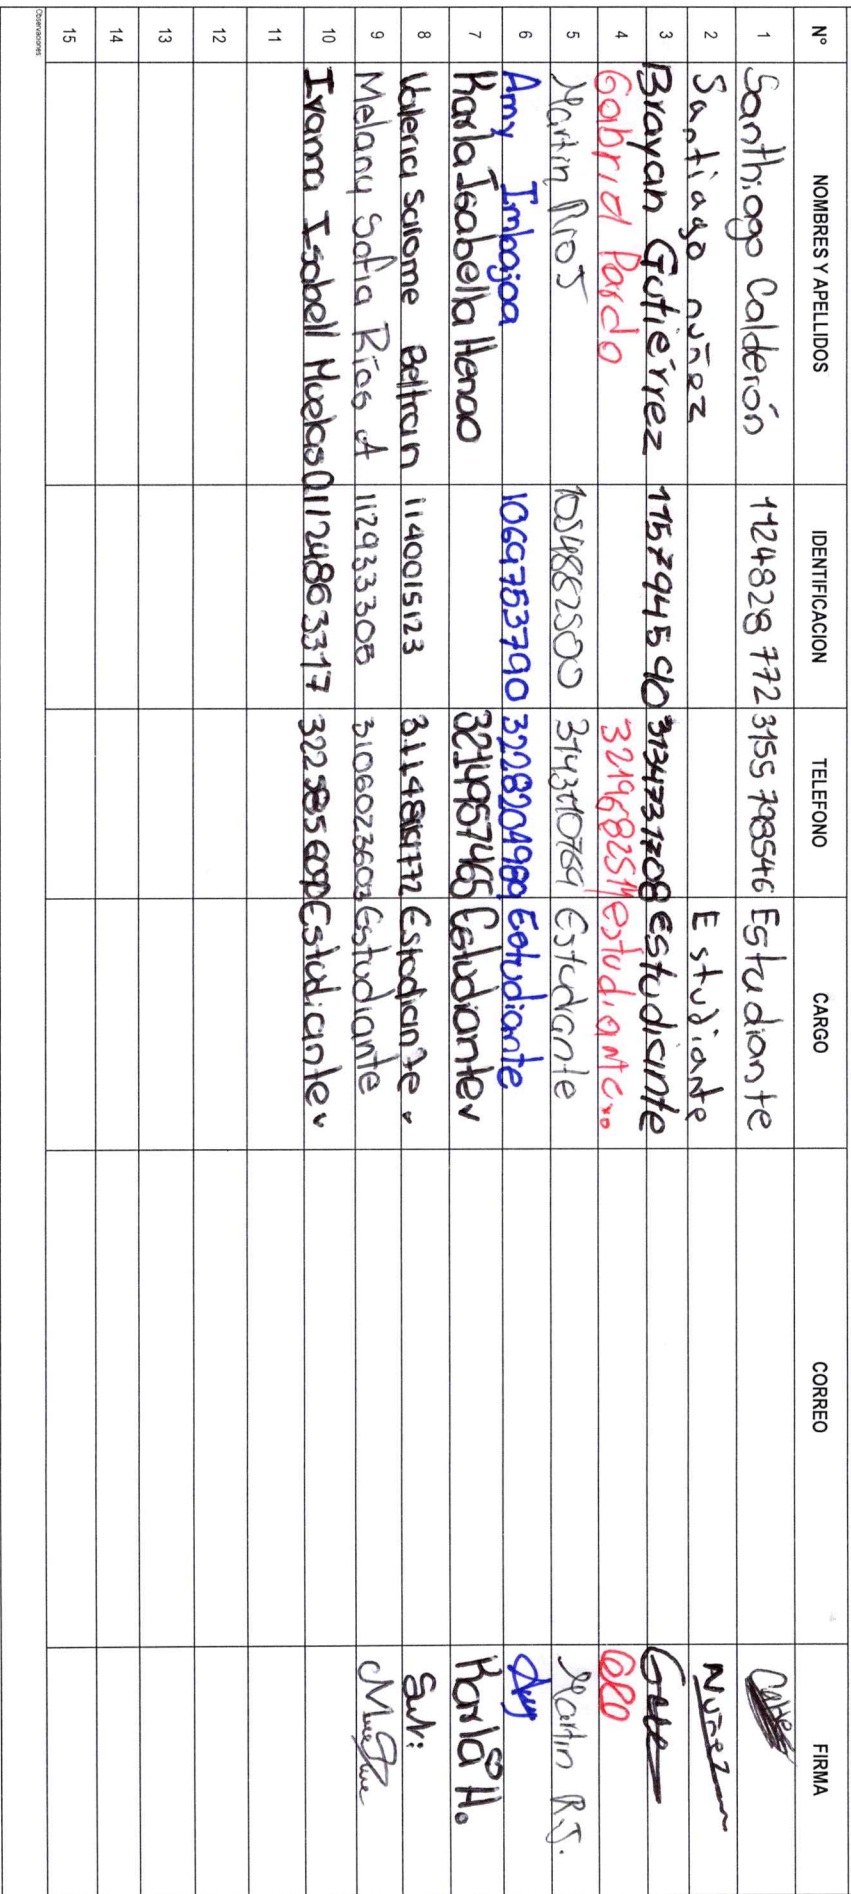 N° NOMBRES Y APELLIDOS IDENTIFICACION TELEFONO CARGO CORREO FIRMA
1 Santhiago Calderón 1124828772 3155798546 Estudiante
2 Santiago nuñez Estudiante Nuñez
3 Brayan Gutierrez 1157944590 3134731708 estudiante
4 Gabriel Pardo estudiante
5 Martin Rios 1054882500 Estudiante Martin R.J.
6 Amy Imbajoa 1069753790 3228204980 Estudiante Amy
7 Karla Isabella Henao 3214957465 Estudiante Karla H.
8 Valeria Salome Beltran 1140015123 Estudiante
9 Melany Sofia Ríos A 1129333305 3106023603 Estudiante
10 Ivanna Isabell Muelas 1124863317 Estudiante
11
12
13
14
15
Observaciones